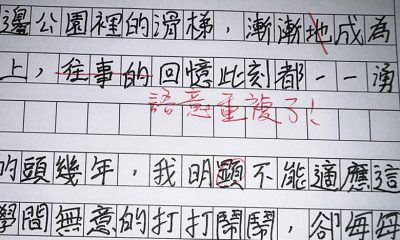 邊公園裡的滑梯，漸漸地成為
上，往事的回憶此刻都一一湧
語意重複了！
的頭幾年，我明顯不能適應這
學間無意的打打鬧鬧，卻每每